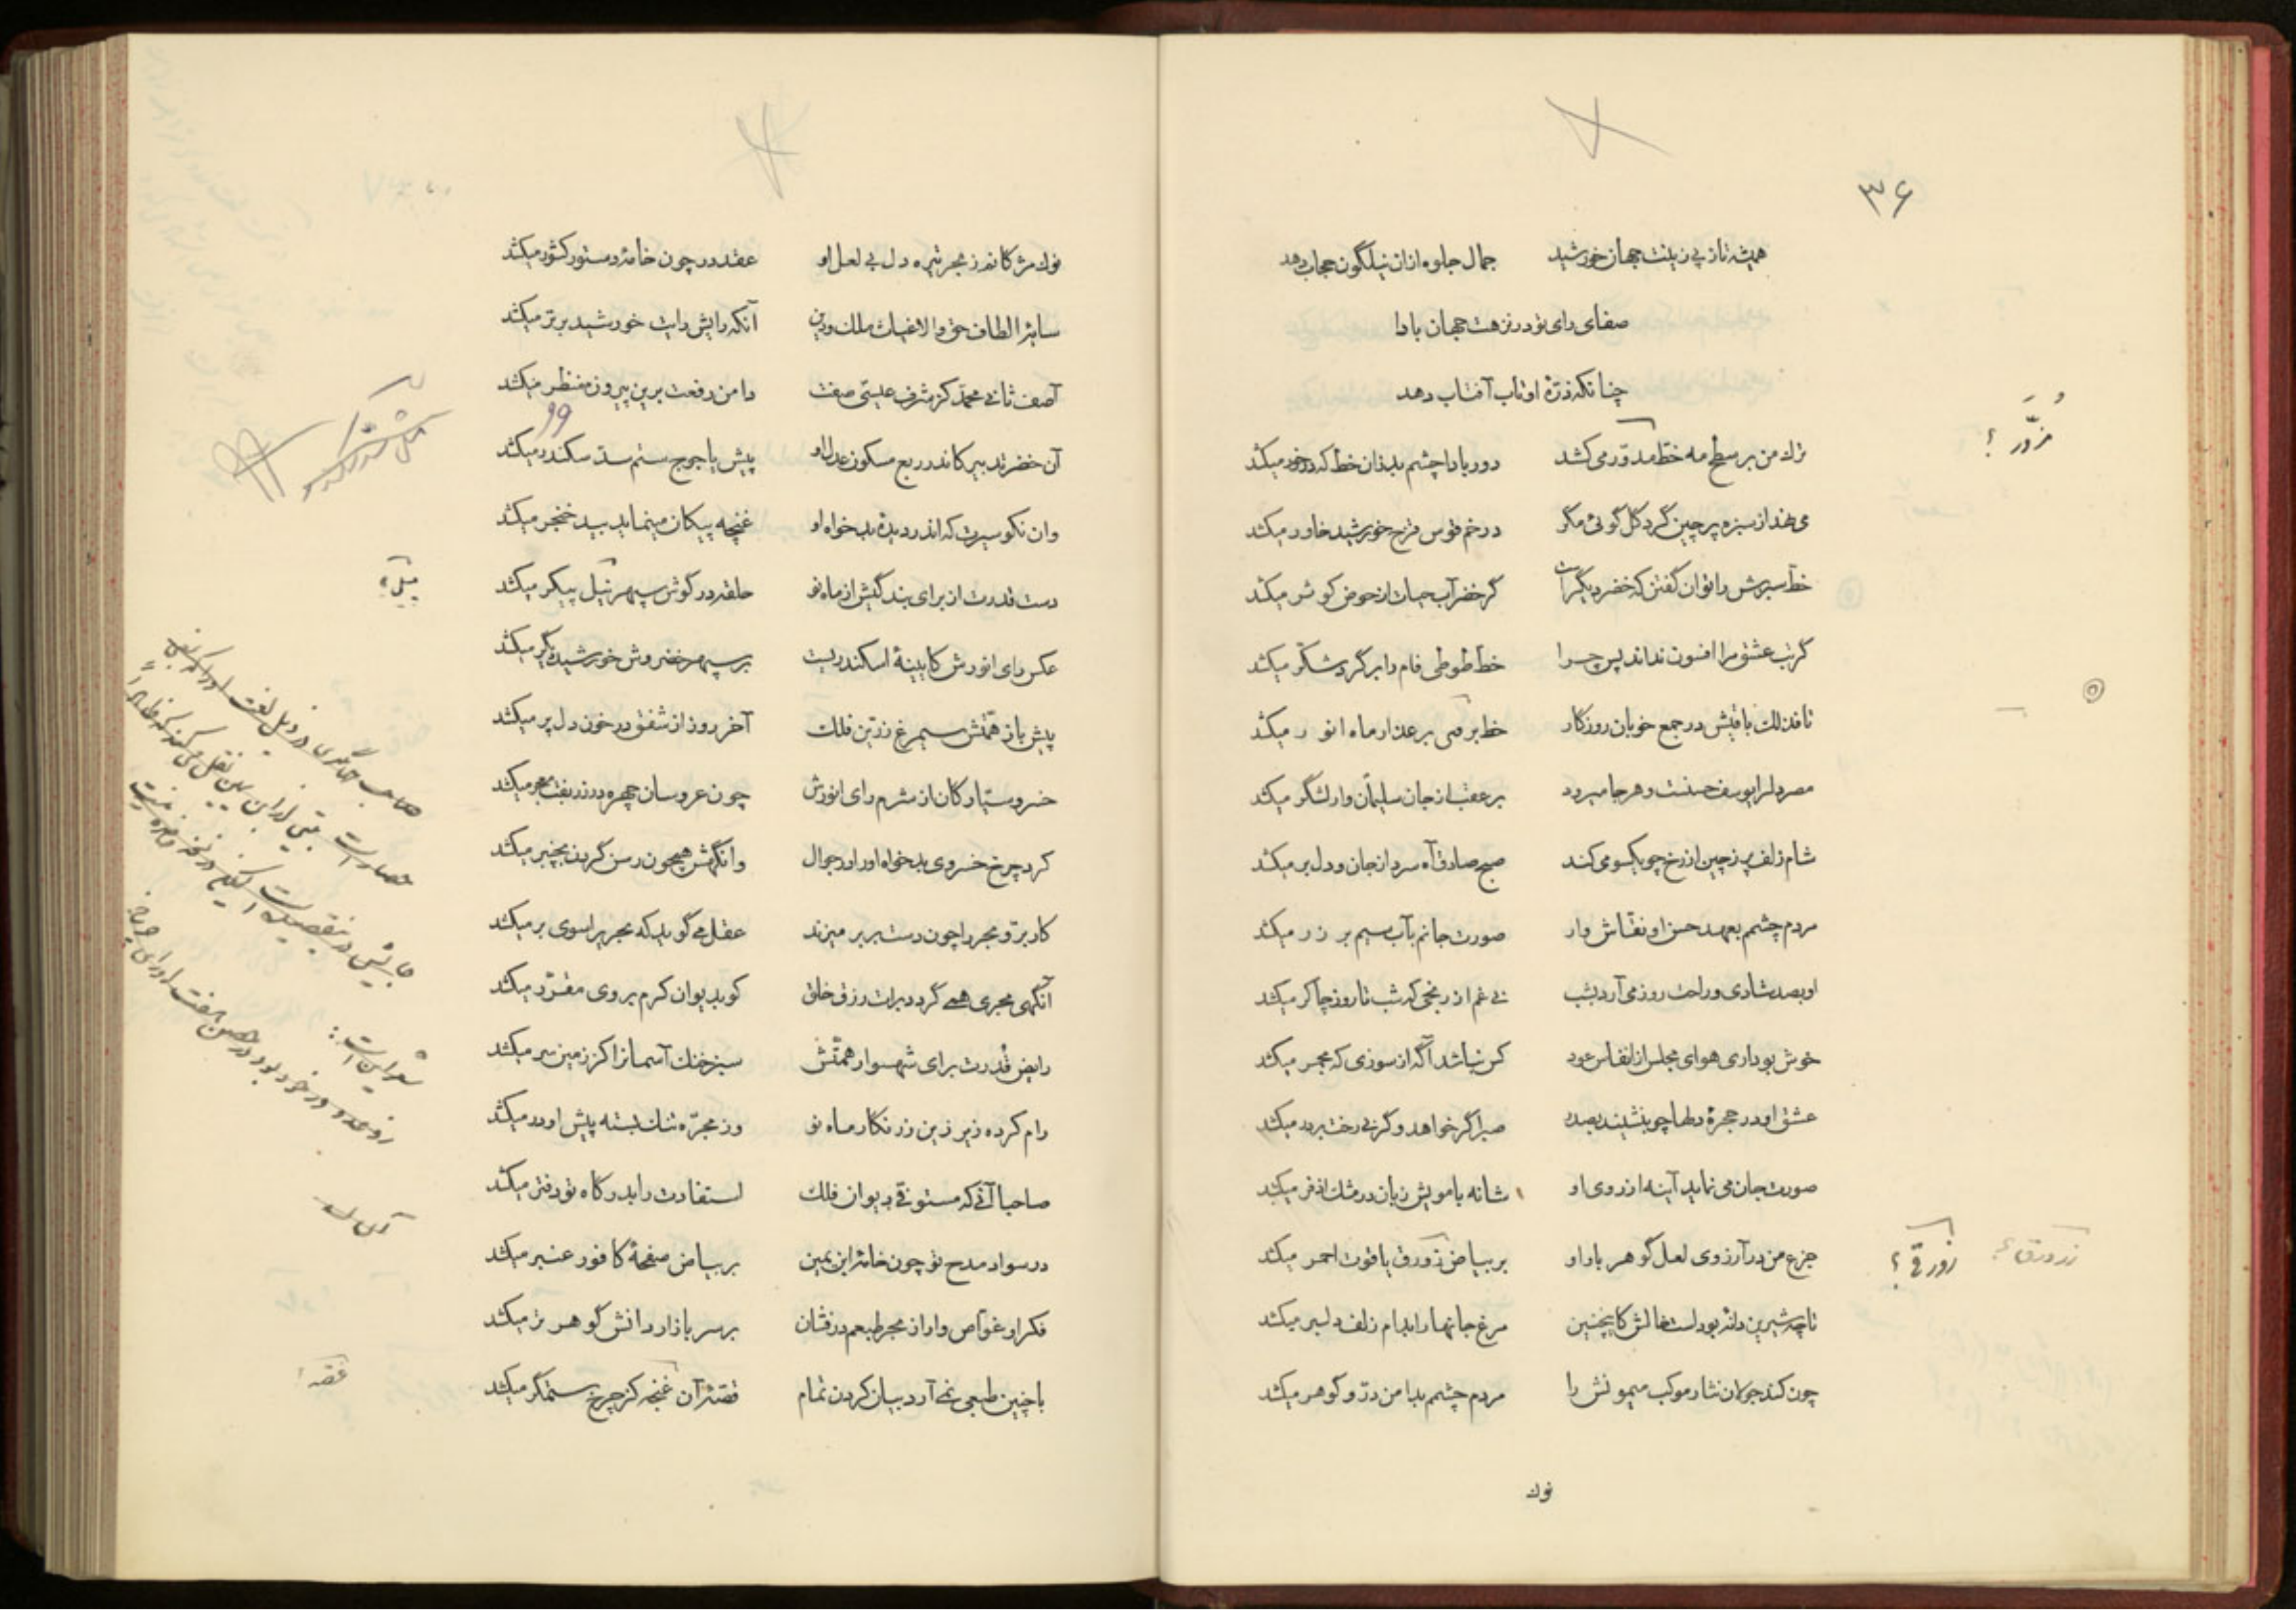 ۳۶
همیشه تا ز پی زینت جهان خورشید جمال جلوه ازان نیلگون حجاب دهد
صفای رای تو در نزهت جهان بادا
چنانکه ذرّهٔ او تاب آفتاب دهد
ترك من بر سطح مه خطّ مدوّر می کشد دور بادا چشم بد زان خط که در خور میکشد
مُزَوَّر ؟
می نهد از سبزه پرچین گرد گل گوئی مگر در خم قوس قزح خورشید خاور میکشد
خطّ سبزش را توان گفتن که خضر دیگر است گر خضر آب حیات از حوض کوثر میکشد
گر نب عشق مرا افسون نداند پس چرا خطّ طوطی فام را بر گرد شکّر میکشد
تا فذلك باقیش در جمع خوبان روزگار خط برصی بر عذار ماه انو ر میکشد
مصر دلرا یوسف حسنت و هر جا میرود بر عقب از جان سلیمان وار لشگر میکشد
شام زلف پر ز چین از رخ چو یکسو می کند صبح صادق آه سرد از جان و دل بر میکشد
مردم چشمم بعهد حسن او نقّاش وار صورت جانم بآب سیم بر ز ر میکشد
او بصد شادی و راحت روز می آرد بشب نی غم از رنجی که شب تا روز چاکر میکشد
خوش بو داری هوای مجلس از انفاس عود کس نباشد آگه از سوزی که مجمر میکشد
عشق او در حجرهٔ دلها چو بنشیند بصدر صبر اگر خواهد و گر نی رخت بر در میکشد
صورت جان می نماید آینه از روی او شانه با مویش زبان در مشك اذفر میکشد
جزع من در آرزوی لعل گوهر بار او بر بیاض زورق یاقوت احمر میکشد
زورقی ؟
زرورق ؟
تا چه شیرین دانه بودست خالش کاینچنین مرغ جانها را بدام زلف دلبر میکشد
چون کند جولان نثار موکب میمونش را مردم چشمم بدامن درّ و گوهر میکشد
نوك
نوك مژگانم ز بحر تیره دل بی لعل او عقد در چون خامهٔ دستور کشور میکشد
سایهٔ الطاف حق والا غیاث ملك و دین آنکه رایش رایت خورشید برتر میکشد
آصف ثانی محمّد کز شرف عیسی صفت دامن رفعت برین پیروزه منظر میکشد
آن خضر تدبیر کاندر ربع مسکون عدل او پیش یاجوج ستم سدّ سکندر میکشد
وان نکو سیرت که اندر دیدهٔ بدخواه او غنچه پیکان مینماید بید خنجر میکشد
دست قدرت از برای بندگیش از ماه نو حلقه در گوش سپهر نیل پیکر میکشد
پیل ؟
عکس رای انورش کایینهٔ اسکندریست بر سپهر خضر وش خورشید دیگر میکشد
پیش باز همّتش سیمرغ زرّین فلك آخر روز از شفق در خون دل پر میکشد
خسرو سیّارگان از شرم رای انورش چون عروسان چهره در زربفت معجر میکشد
کرد چرخ خسروی بدخواه او را در جوال وانگهش همچون رسن گردن بچنبر میکشد
کار بر و بحر را چون دست بر بر میزند عقل می گوید که بحر پر اسوی بر میکشد
آنگهی مجری همی گردد برات رزق خلق کو بدیوان کرم بر وی مقرّر میکشد
رایض قدرت برای شهسوار همّتش سبز خنك آسمانرا کز زمین سر میکشد
رام کرده زیر زین زرنگار ماه نو وز مجرّه تنگ بسته پیش او در میکشد
صاحبا آنی که مستوفی دیوان فلك استفادت را بدرگاه تو دفتر میکشد
در سواد مدح تو چون خامهٔ ابن یمین بر بیاض صفحهٔ کافور عنبر میکشد
فکر او غوّاص وار از بحر طبعم در فشان بر سر بازار دانش گوهر تر میکشد
با چنین طبعی نمی آرد بیان کردن تمام قصّهٔ آن غنجه کز چرخ ستمگر میکشد
غصّه ؟